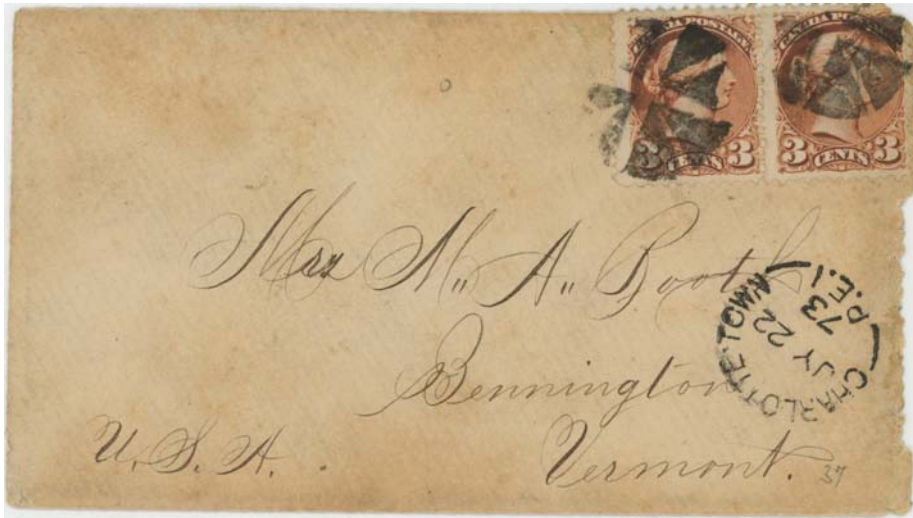 CANADA POSTAGE
3 CENTS 3
CANADA POSTAGE
3 CENTS 3
Mrs M. A. Booth
CHARLOTTE-TOWN
JY 22
73
P.E.I
Bennington
U. S. A.
Vermont.
37